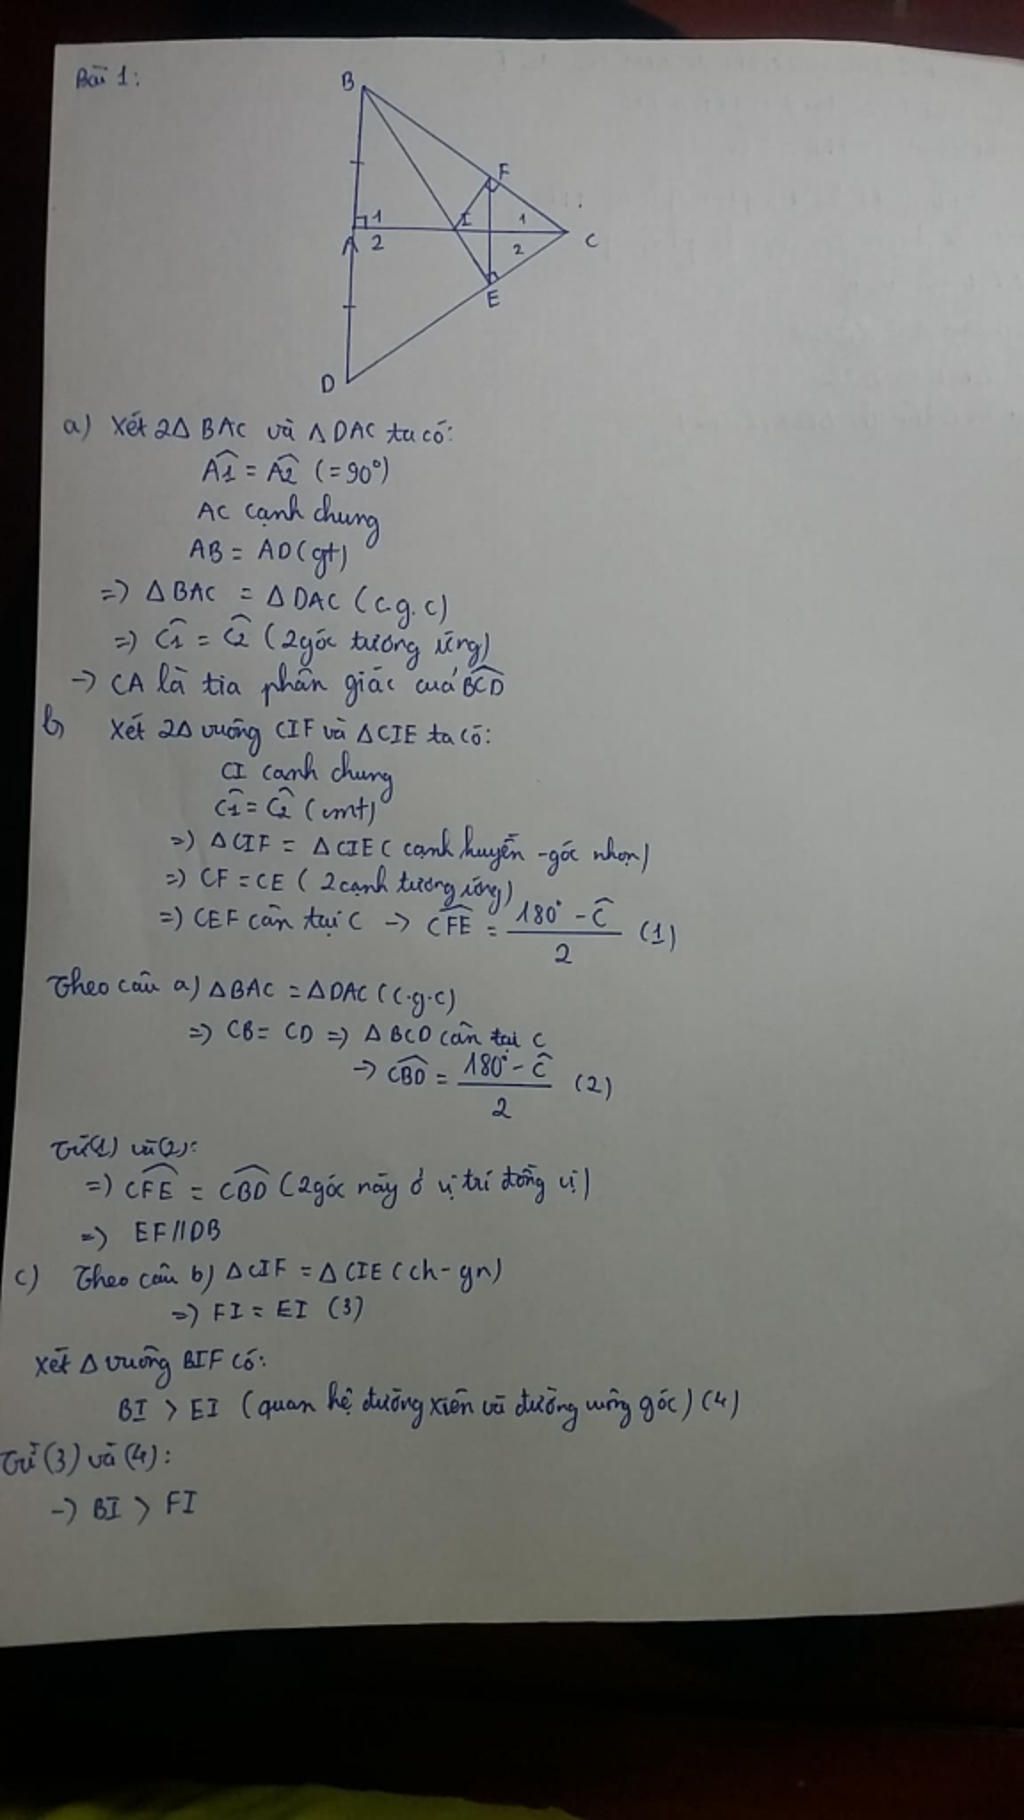 Bài 1:
B
F
1 I 1
A 2 2 C
E
D
a) Xét 2Δ BAC và Δ DAC ta có:
Â1 = Â2 (= 90°)
AC cạnh chung
AB = AD (gt)
=> Δ BAC = Δ DAC (c.g.c)
=> Ĉ1 = Ĉ2 (2 góc tương ứng)
-> CA là tia phân giác của \widehat{BCD}
b) Xét 2Δ vuông CIF và Δ CIE ta có:
CI cạnh chung
Ĉ1 = Ĉ2 (cmt)
=> Δ CIF = Δ CIE (cạnh huyền - góc nhọn)
=> CF = CE (2 cạnh tương ứng)
=> CEF cân tại C -> \widehat{CFE} = \frac{180° - Ĉ}{2} (1)
Theo câu a) Δ BAC = Δ DAC (c.g.c)
=> CB = CD => Δ BCD cân tại C
-> \widehat{CBD} = \frac{180° - Ĉ}{2} (2)
Từ (1) và (2):
=> \widehat{CFE} = \widehat{CBD} (2 góc này ở vị trí đồng vị)
=> EF // DB
c) Theo câu b) Δ CIF = Δ CIE (ch - gn)
=> FI = EI (3)
Xét Δ vuông BIF có:
BI > EI (quan hệ đường xiên và đường vuông góc) (4)
Từ (3) và (4):
-> BI > FI